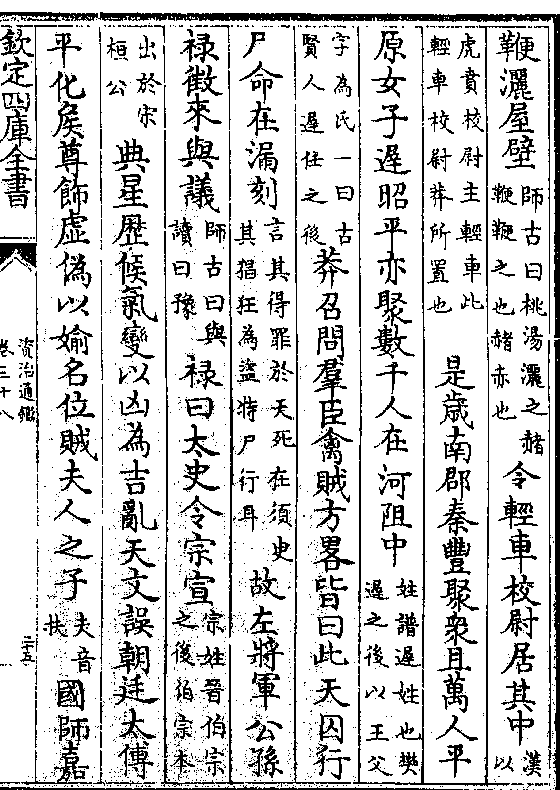 鞭灑屋壁師古曰桃湯灑之赭鞭鞭之也赭赤也令輕車校尉居其中漢以
虎賁校尉主輕車此輕車校尉莽所置也是歲南郡秦豐聚衆且萬人平
原女子遲昭平亦聚數千人在河阻中姓譜遲姓也樊遲之後以王父
字為氏一曰古賢人遲任之後莽召問羣臣禽賊方畧皆曰此天囚行
尸命在漏刻言其得罪於天死在須史其猖狂為盜特尸行耳故左將軍公孫
禄徵來與議師古曰與讀曰豫禄曰太史令宗宣宗姓晉伯宗之後伯宗本
出於宋桓公典星歷候氣變以凶為吉亂天文誤朝廷太傅
平化侯尊飾虚偽以媮名位賊夫人之子夫音扶國師嘉
欽定四庫全書
資治通鑑
卷三十八
二十五